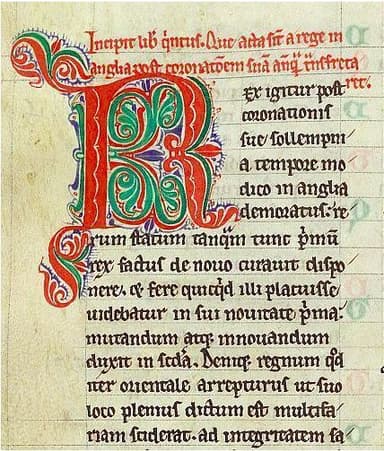 Incipit lib' q'ntus. Que acta st̄ a rege in
anglia post coronatōem suā anq̄m t̄nsfreta
ret.
Rex igitur post
coronationis
sue sollempni
a tempore mo
dico in anglia
demoratus: re
rum statum tanq̄m tunc p̄mū
rex factus de nouo curauit dispo
nere. et fere quicq̄d illi placuisse
uidebatur in sui nouitate p̄ma:
mutandum atq; innouandum
duxit in sc̄da. Deniq; regnum qd̄
iter orientale arrepturus ut suo
loco plenius dictum est multifa
riam sciderat. ad integritatem sa